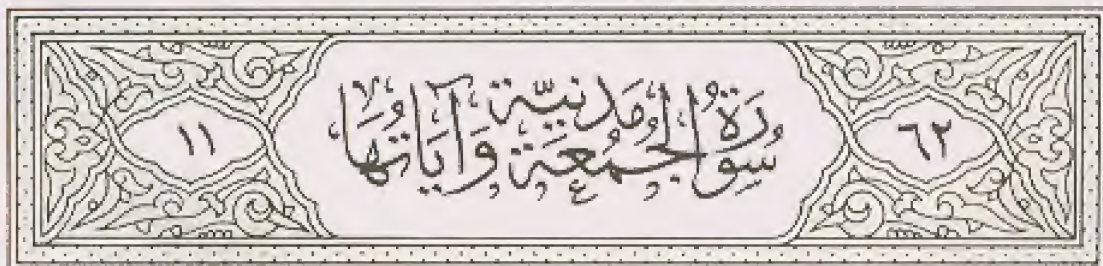 ٦٢
سُورَةُ الْجُمُعَةِ مَدَنِيَّة وَآيَاتُهَا
١١